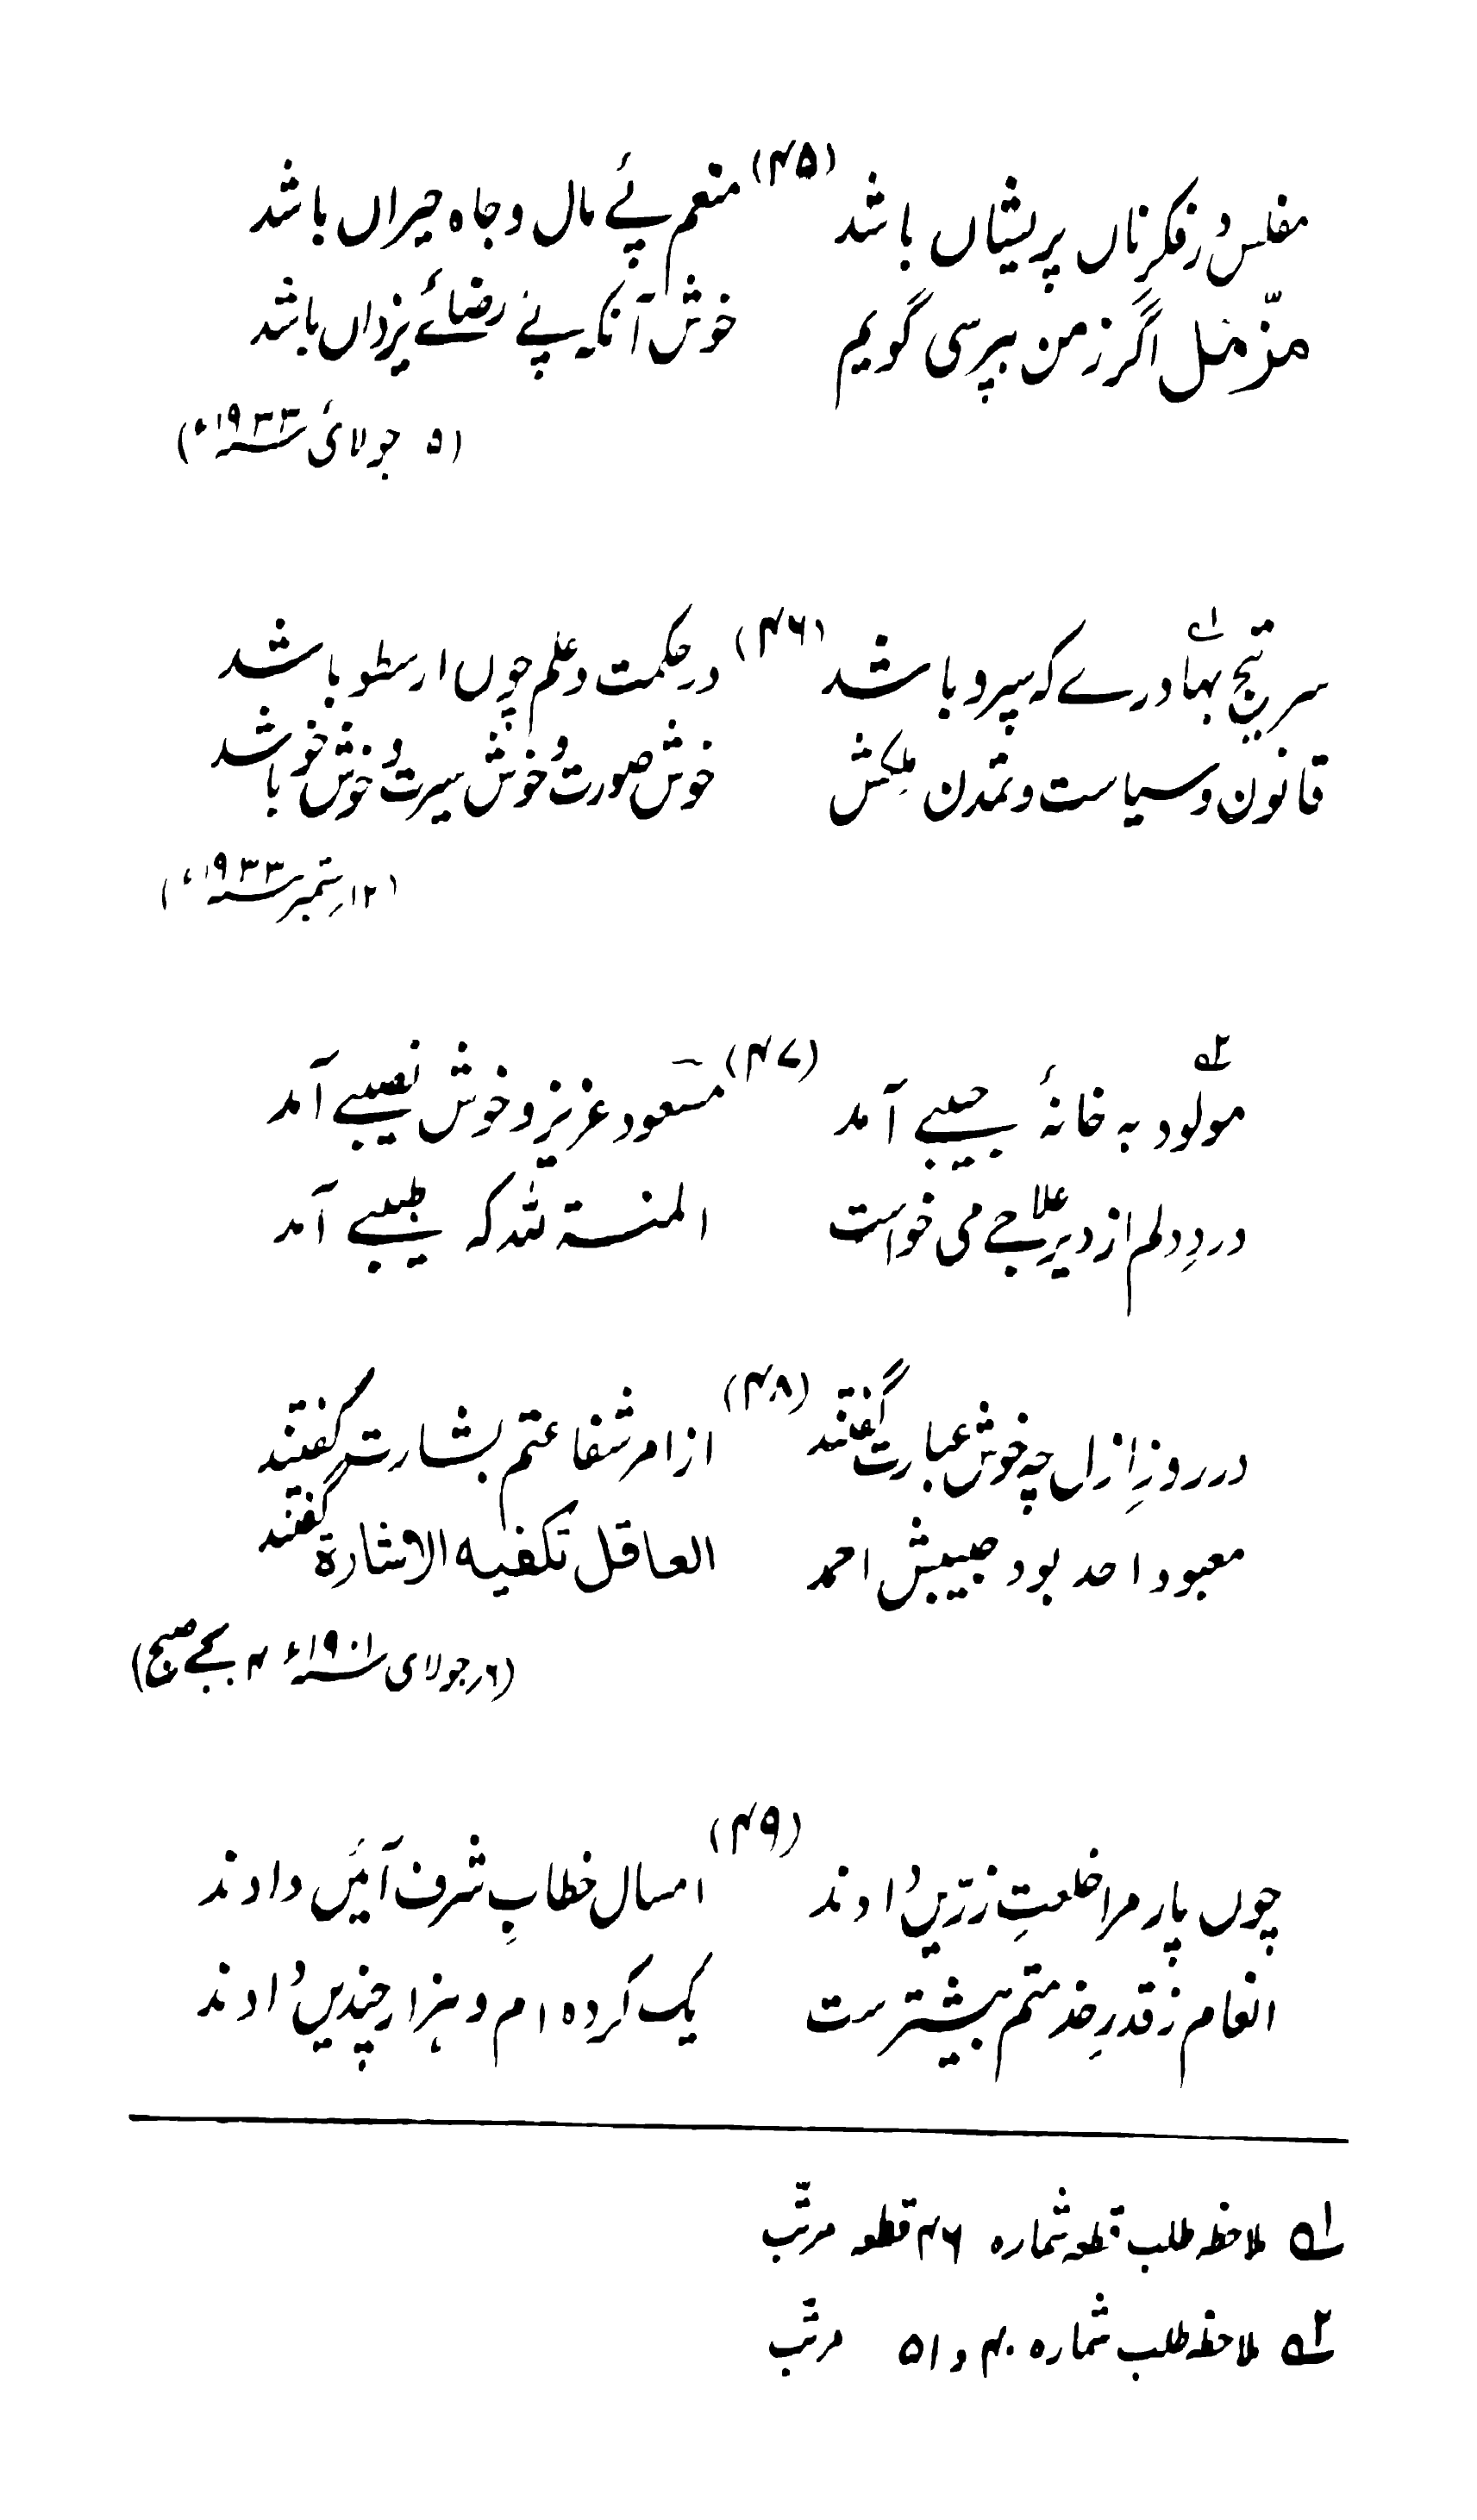 (۴۵)
مفلس ز فکر ناں پریشاں باشد منعم پئے مال و جاہ حیراں باشد
مزّمّل اگر ز من بپرسی گویم خوش آنکہ پئے رضائے یزداں باشد
(۵ جولائی ۱۹۳۳ء)
(۴۶)
سر تیج بہادرے کہ سپرو باشد در حکمت و علم چوں ارسطو باشد
قانون و سیاست و تمدن ملکش خوش صورت و خوش سیرت و خوش خو باشد
(۱۲ ستمبر ۱۹۳۳ء)
(۴۷)
مولود بہ خانۂ حبیبے آمد مسعود عزیز و خوش نصیبے آمد
دردِ دلم از دیر علاجے می خواست المنتہ للہ کہ طبیبے آمد
(۴۸)
در روزِ ازل چہ خوش عبارت گفتند از امر شفاعتم بشارت گفتند
معبود احد بود حبیبش احمد العاقل تکفیہ الاشارۃ گفتند
(۹ر جولائی ۱۹۰۱ء ۴ بجے صبح)
(۴۹)
چوں پار مرا خلعتِ زرّیں دادند امسال خطابِ شرف آئیں دادند
انعام ز قدرِ خدمتم بیشترست یک کردہ ام و ہزار چندیں دادند
۱؎ ملاحظہ طلب قطعہ شمارہ ۴۶ قطعہ مرتب
۲؎ ملاحظہ طلب شمارہ ۴۰ و ۵۱ مرتب